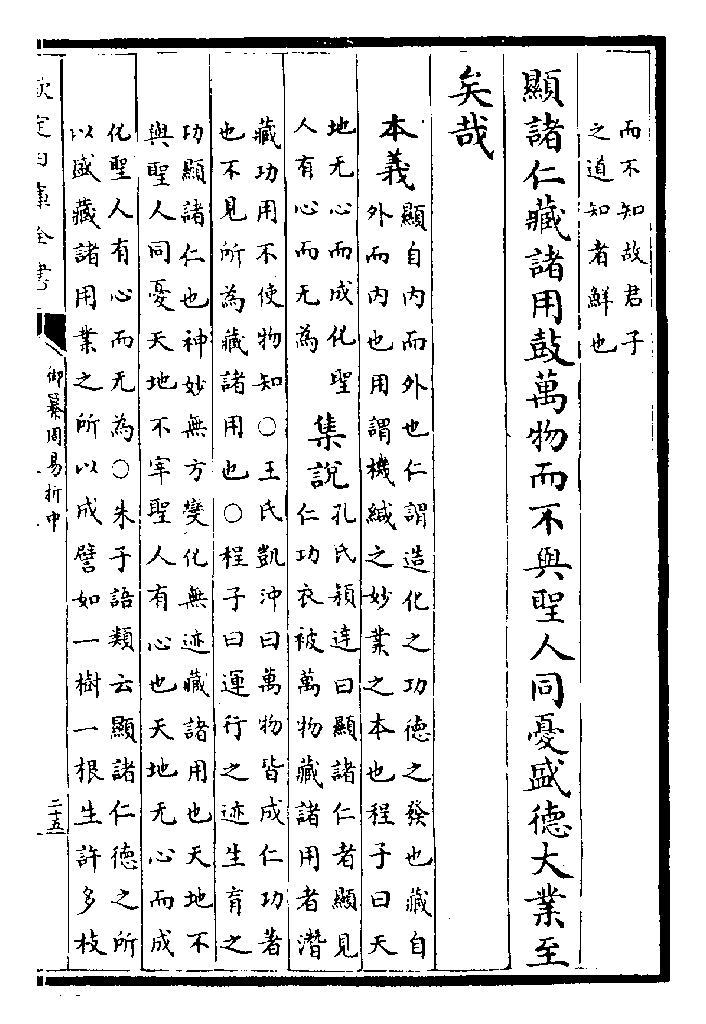 而不知故君子
之道知者鮮也
顯諸仁藏諸用鼓萬物而不與聖人同憂盛德大業至
矣哉
本義
顯自内而外也仁謂造化之功德之發也藏自
外而内也用謂機緘之妙業之本也程子曰天
地无心而成化聖
人有心而无為
集說
孔氏穎逹曰顯諸仁者顯見
仁功衣被萬物藏諸用者潛
藏功用不使物知○王氏凱沖曰萬物皆成仁功著
也不見所為藏諸用也○程子曰運行之迹生育之
功顯諸仁也神妙無方變化無迹藏諸用也天地不
與聖人同憂天地不宰聖人有心也天地无心而成
化聖人有心而无為○朱子語類云顯諸仁德之所
以盛藏諸用業之所以成譬如一樹一根生許多枝
欽定四庫全書
御纂周易折中
二十五